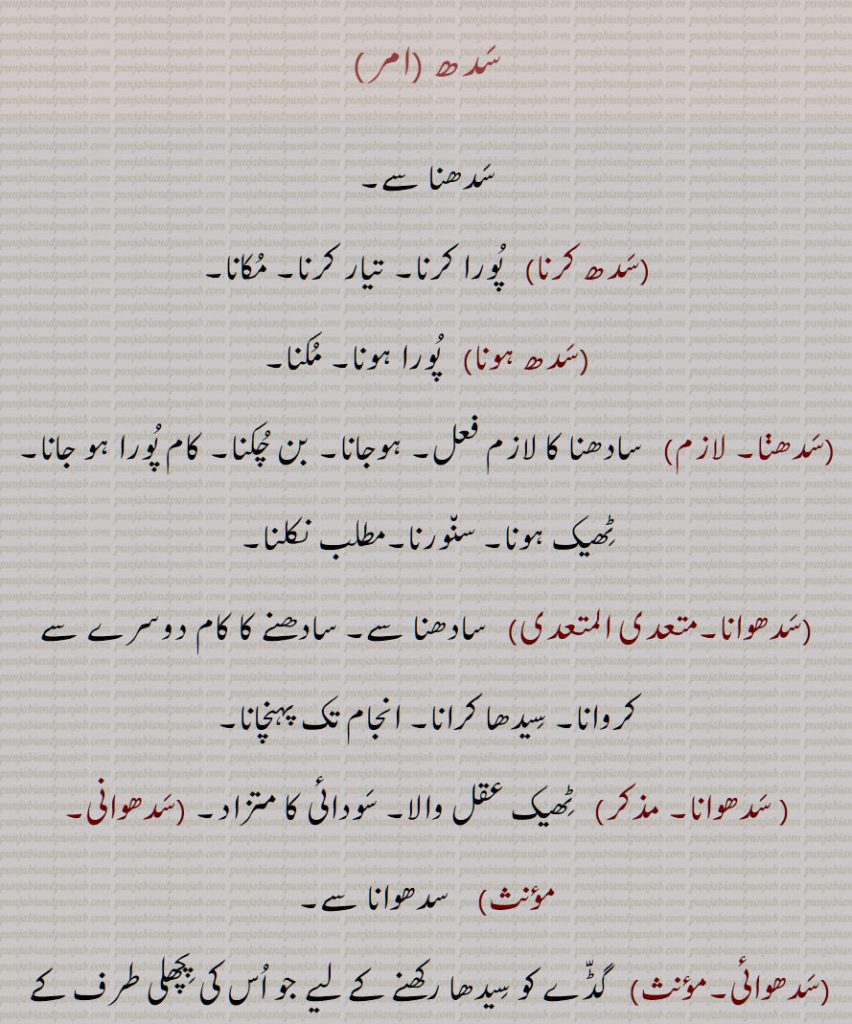 سَدھ (امر)
سَدھنا سے۔
(سَدھ کرنا) پُورا کرنا۔ تیار کرنا۔ مُکانا۔
(سَدھ ہونا) پُورا ہونا۔ مُکنا۔
(سَدھنْا۔ لازم) سادھنا کا لازم فعل۔ ہوجانا۔ بن چُکنا۔ کام پُورا ہو جانا۔
ٹِھیک ہونا۔ سنّورنا۔مطلب نکلنا۔
(سَدھوانا۔متعدی المتعدی) سادھنا سے۔ سادھنے کا کام دوسرے سے
کروانا۔ سِیدھا کرانا۔ انجام تک پہنچانا۔
( سَدھوانا۔ مذکر) ٹِھیک عقل والا۔ سَودائی کا متزاد۔ (سَدھوانی۔
مؤنث) سدھوانا سے۔
(سَدھوائی۔مؤنث) گڈّے کو سِیدھا رکھنے کے لیے جو اُس کی پِچھلی طرف کے
punjabiandpunjab.com